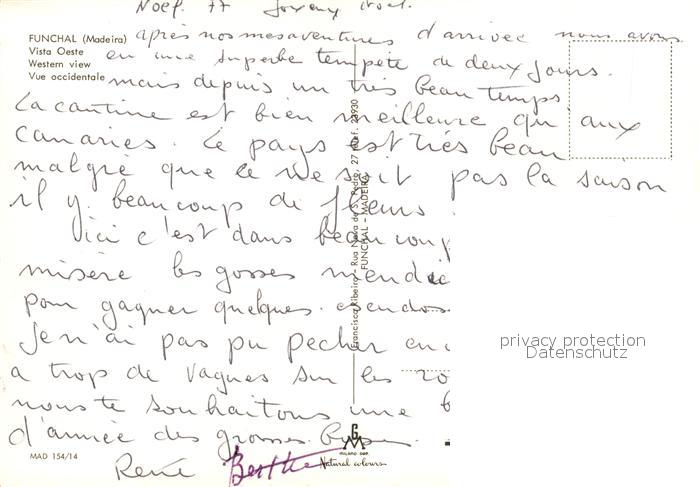 Noël 77 Joyeux Noel.
FUNCHAL (Madeira)
Vista Oeste
Western view
Vue occidentale
après nos mesaventures d'arrivée nous avons
en une superbe tempete de deux jours.
mais depuis un très beau temps
La cantine est bien meilleure qu'aux
canaries. Le pays est très beau
malgré que ce ne soit pas la saison
il y beaucoup de fleurs.
Ici c'est dans beaucoup
misère les gosses mendie
pour gagner quelques escudos.
Je n'ai pas pu pecher en
a trop de vagues sur les ro
nous te souhaitons une b
d'année des grosses bises.
René Berthe
MAD 154/14
Francisco Ribeiro - Rua Nova de S. Pedro, 27 - Telef. 23930
FUNCHAL - MADEIRA
GM
MILANO DEP.
Natural colours
privacy protection
Datenschutz